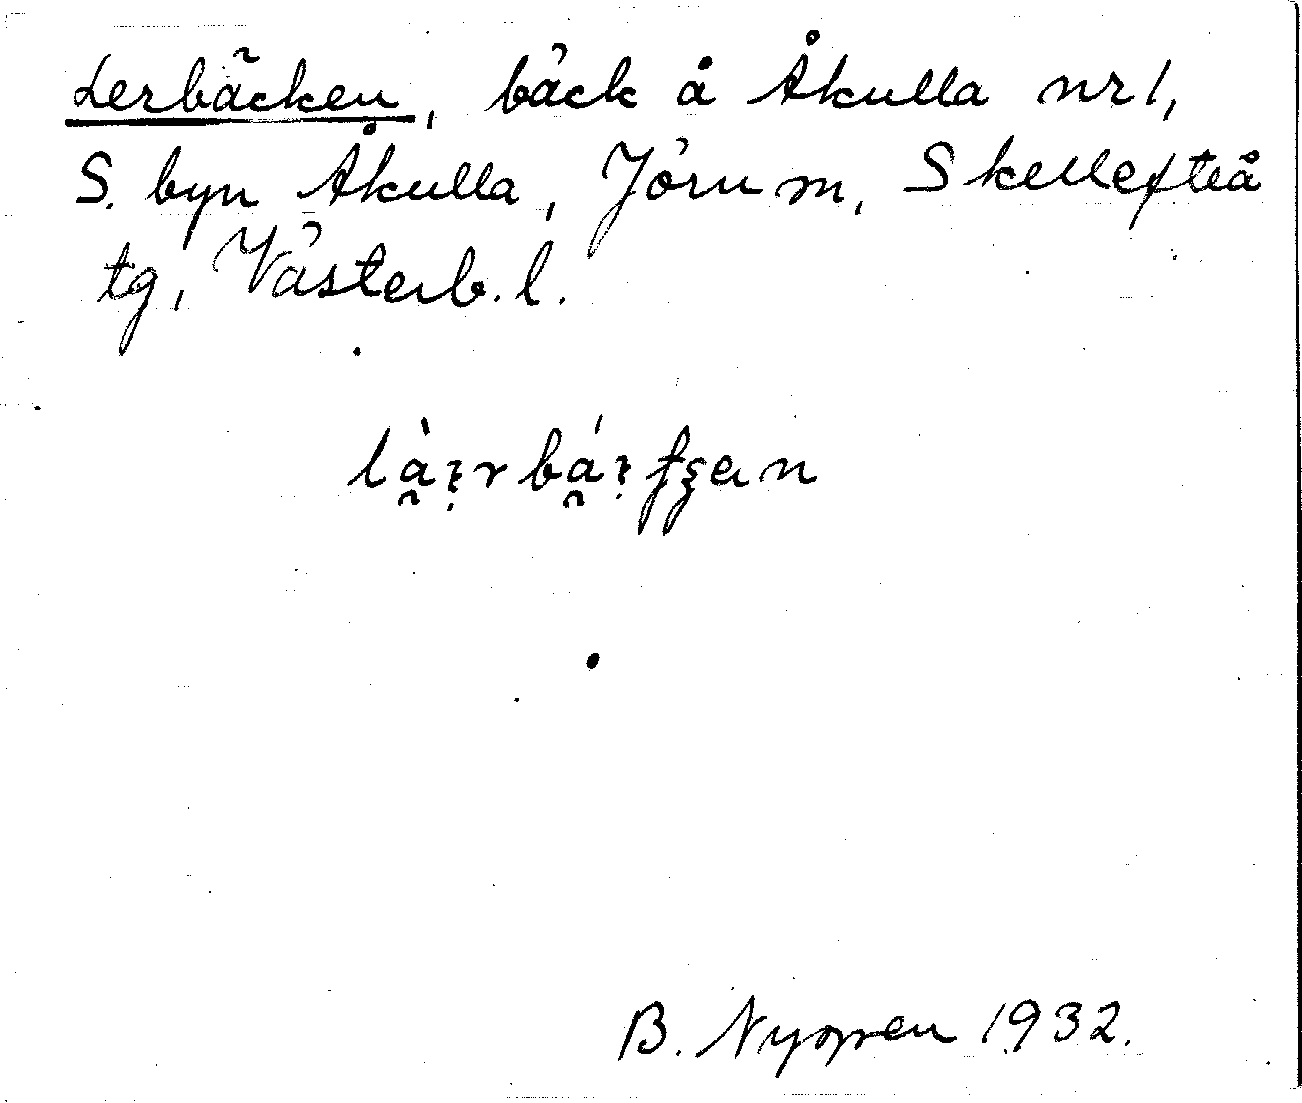 Lerbäcken, bäck å Åkulla nr 1,
S. byn Åkulla, Jörn sn, Skellefteå
tg, Västerb. l.
B. Nyman 1932.